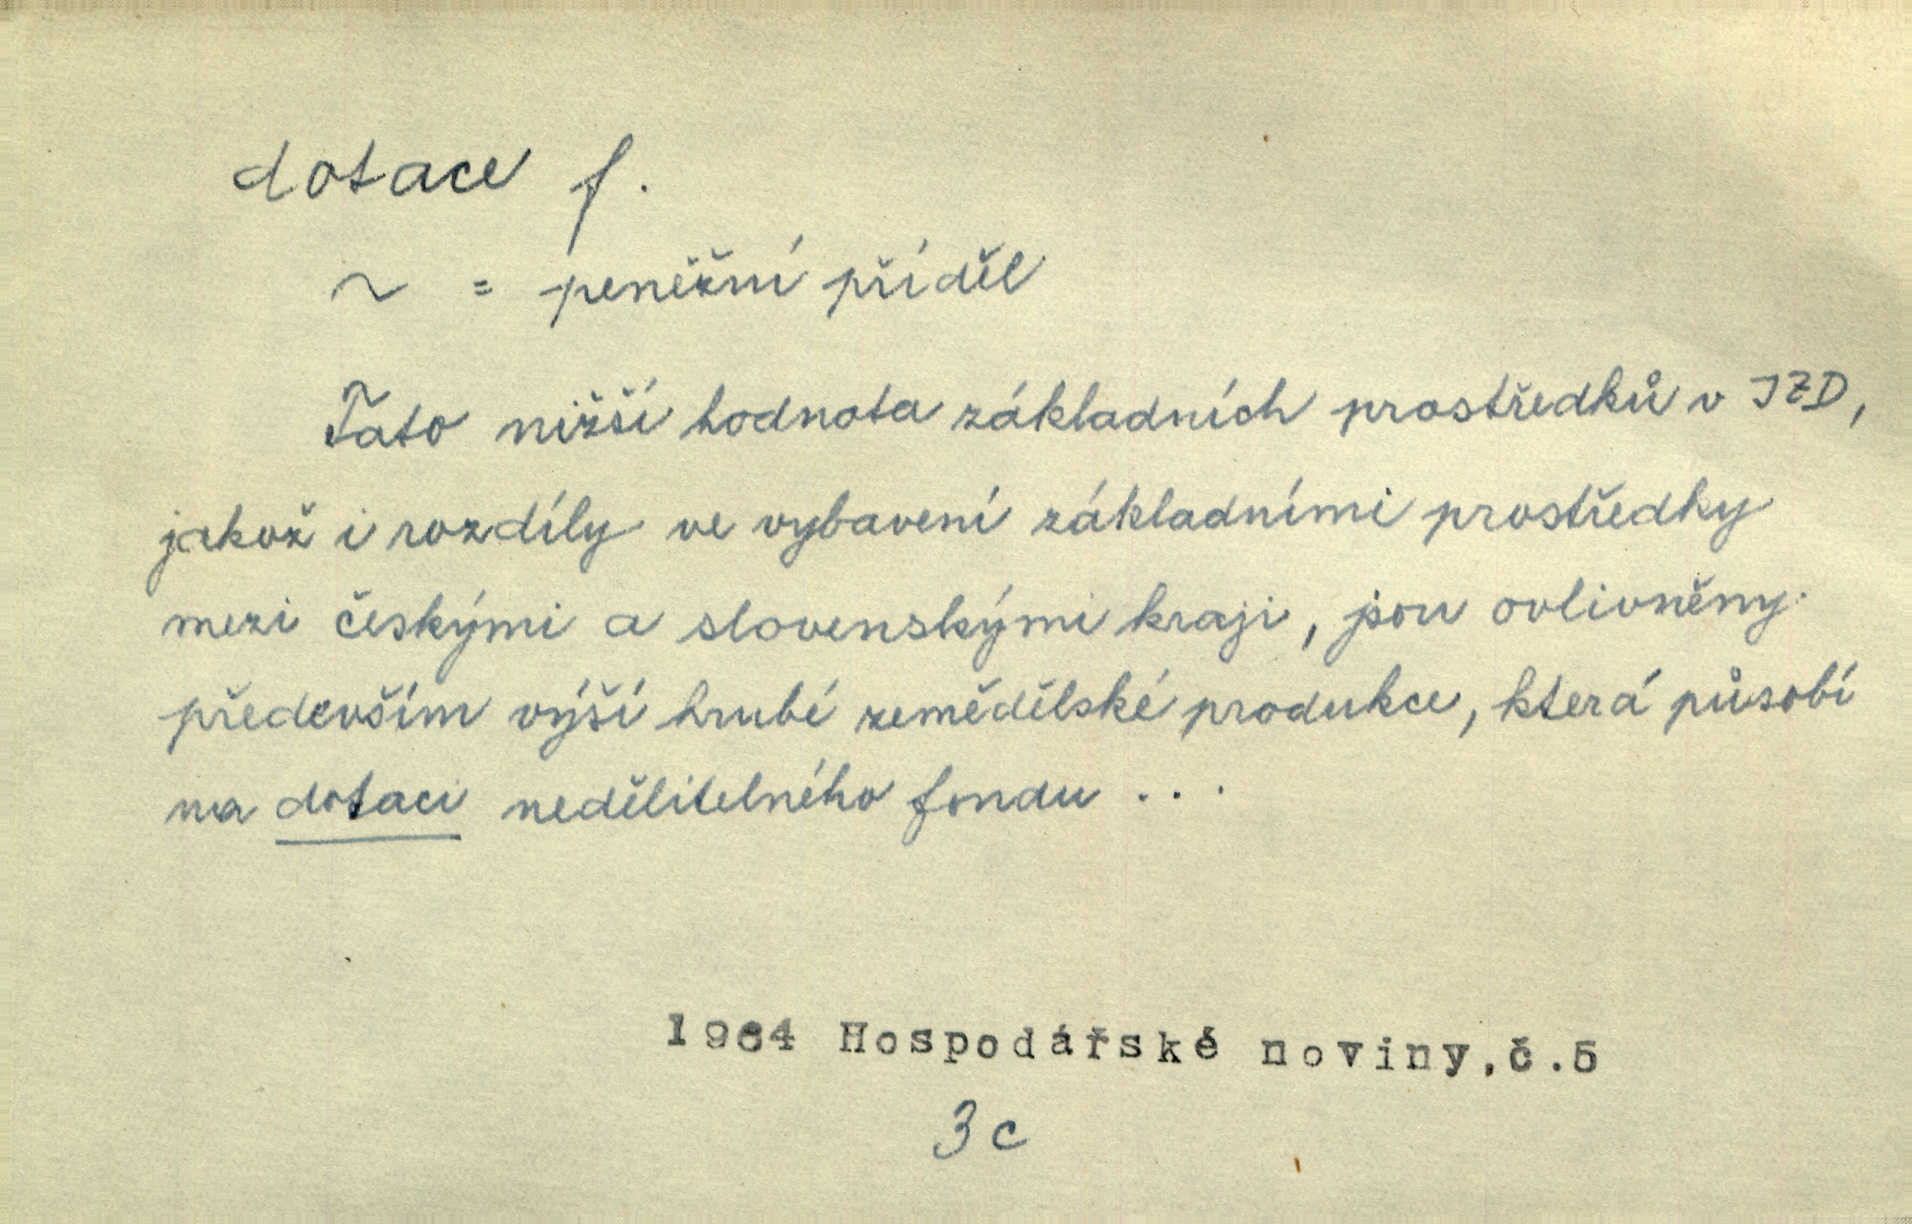 dotace f.
~ = peněžní příděl
Tato nižší hodnota základních prostředků v JZD,
jakož i rozdíly ve vybavení základními prostředky
mezi českými a slovenskými kraji, jsou ovlivněny
především výší hrubé zemědělské produkce, která působí
na dotaci nedělitelného fondu ...
1964 Hospodářské noviny, č.5
3c